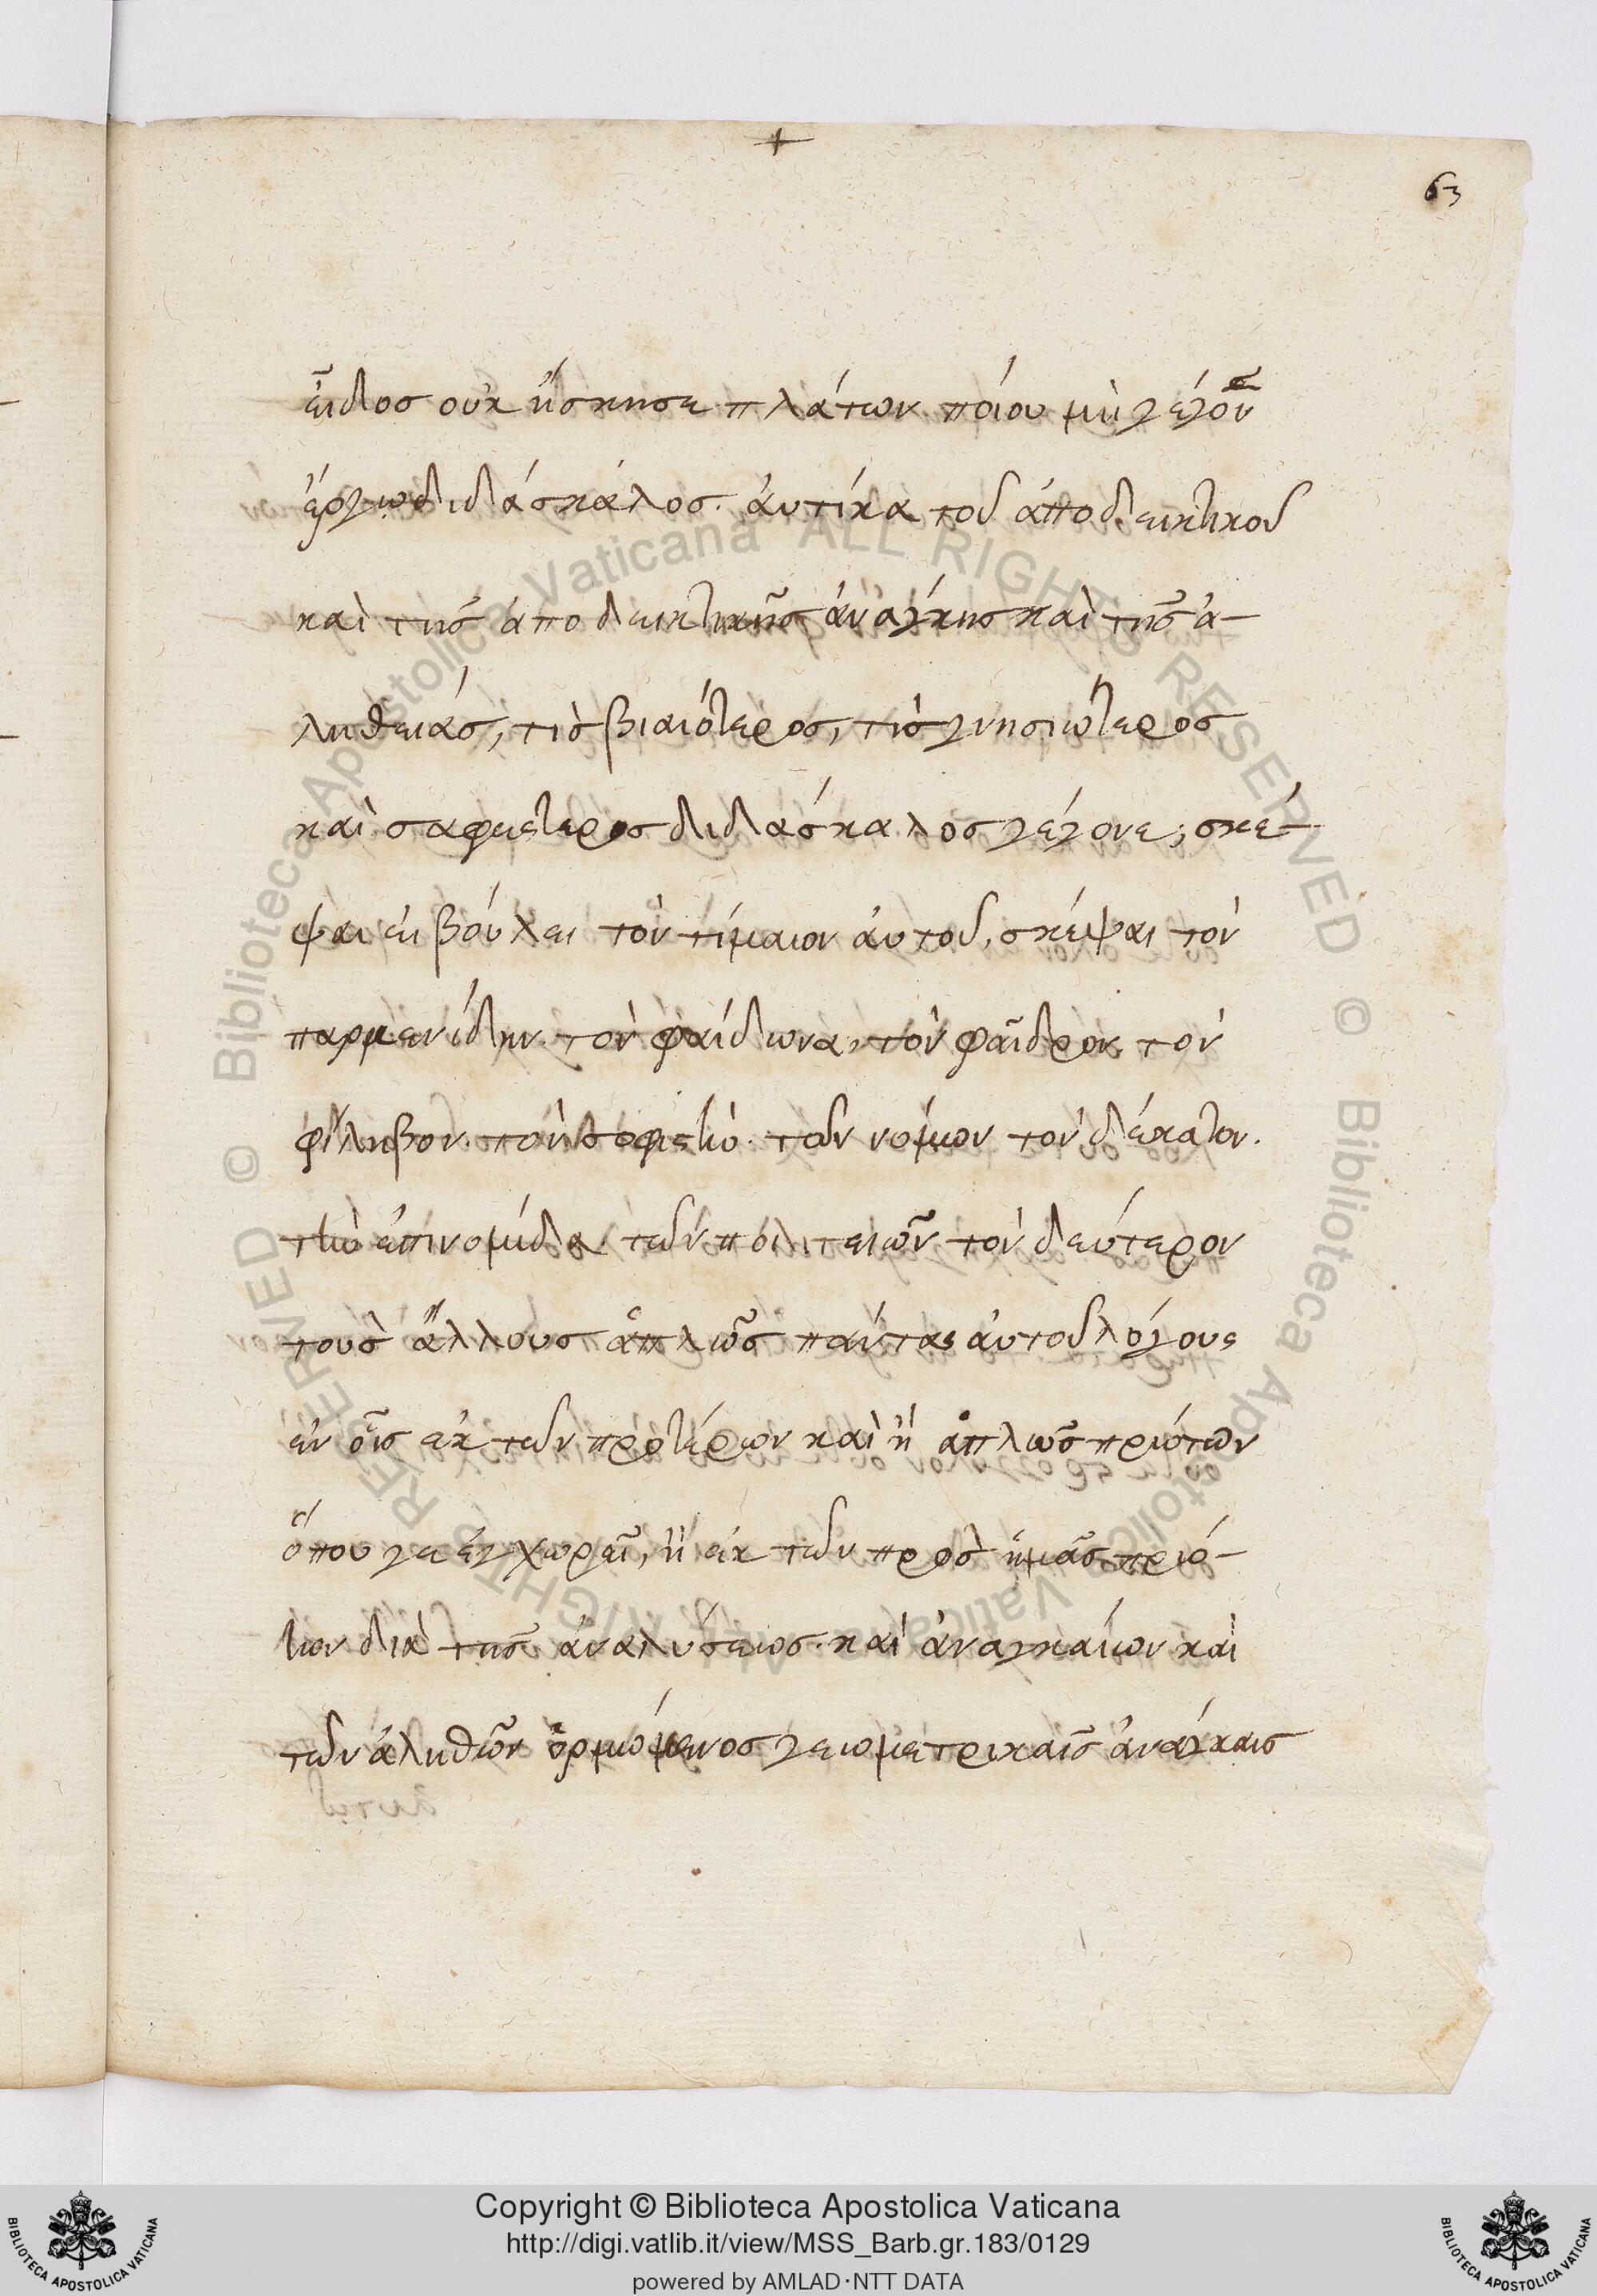 63
εἶδος οὐκ ἤσκησε πλάτων. ποίου μὴ γέγονεν
ἐργωδιδάσκαλος. ἀυτίκα τοῦ ἀποδεικτικοῦ
καὶ τῆς ἀποδεικτικῆς ἀνάγκης καὶ τῆς ἀ-
ληθειάς, τὶς βιαιότερος, τὶς γνησιώτερος
καὶ σαφέστερος διδάσκαλος γέγονε; σκέ-
ψαι εἰ βούλει τὸν τίμαιον ἀυτοῦ, σκέψαι τὸν
παρμενίδην. τὸν φαίδωνα, τὸν φαῖδρον. τὸν
φίληβον. τὸν σοφιστὴν. τῶν νόμων τὸν δέκατον.
τὴν ἐπινομίδα. τῶν πολιτειῶν τὸν δεύτερον
τοὺς ἄλλους ἁπλῶς πάντας ἀυτοῦ λόγους
ἐν οἷς ἐκ τῶν προτέρων καὶ ἢ ἁπλῶς πρώτων
ὅπου γε ἐγχωρεῖ, ἢ ἐκ τῶν πρὸς ἡμᾶς πρώ-
των διὰ τῆς ἀναλύσεως. καὶ ἀναγκαίων καὶ
τῶν ἀληθῶν ὁρμώμενος γεωμετρικαῖς ἀνάγκαις
© Biblioteca Apostolica Vaticana ALL RIGHTS RESERVED © Biblioteca Apostolica Vaticana ALL RIGHTS RESERVED
Copyright © Biblioteca Apostolica Vaticana
http://digi.vatlib.it/view/MSS_Barb.gr.183/0129
powered by AMLAD·NTT DATA
BIBLIOTECA APOSTOLICA VATICANA
BIBLIOTECA APOSTOLICA VATICANA